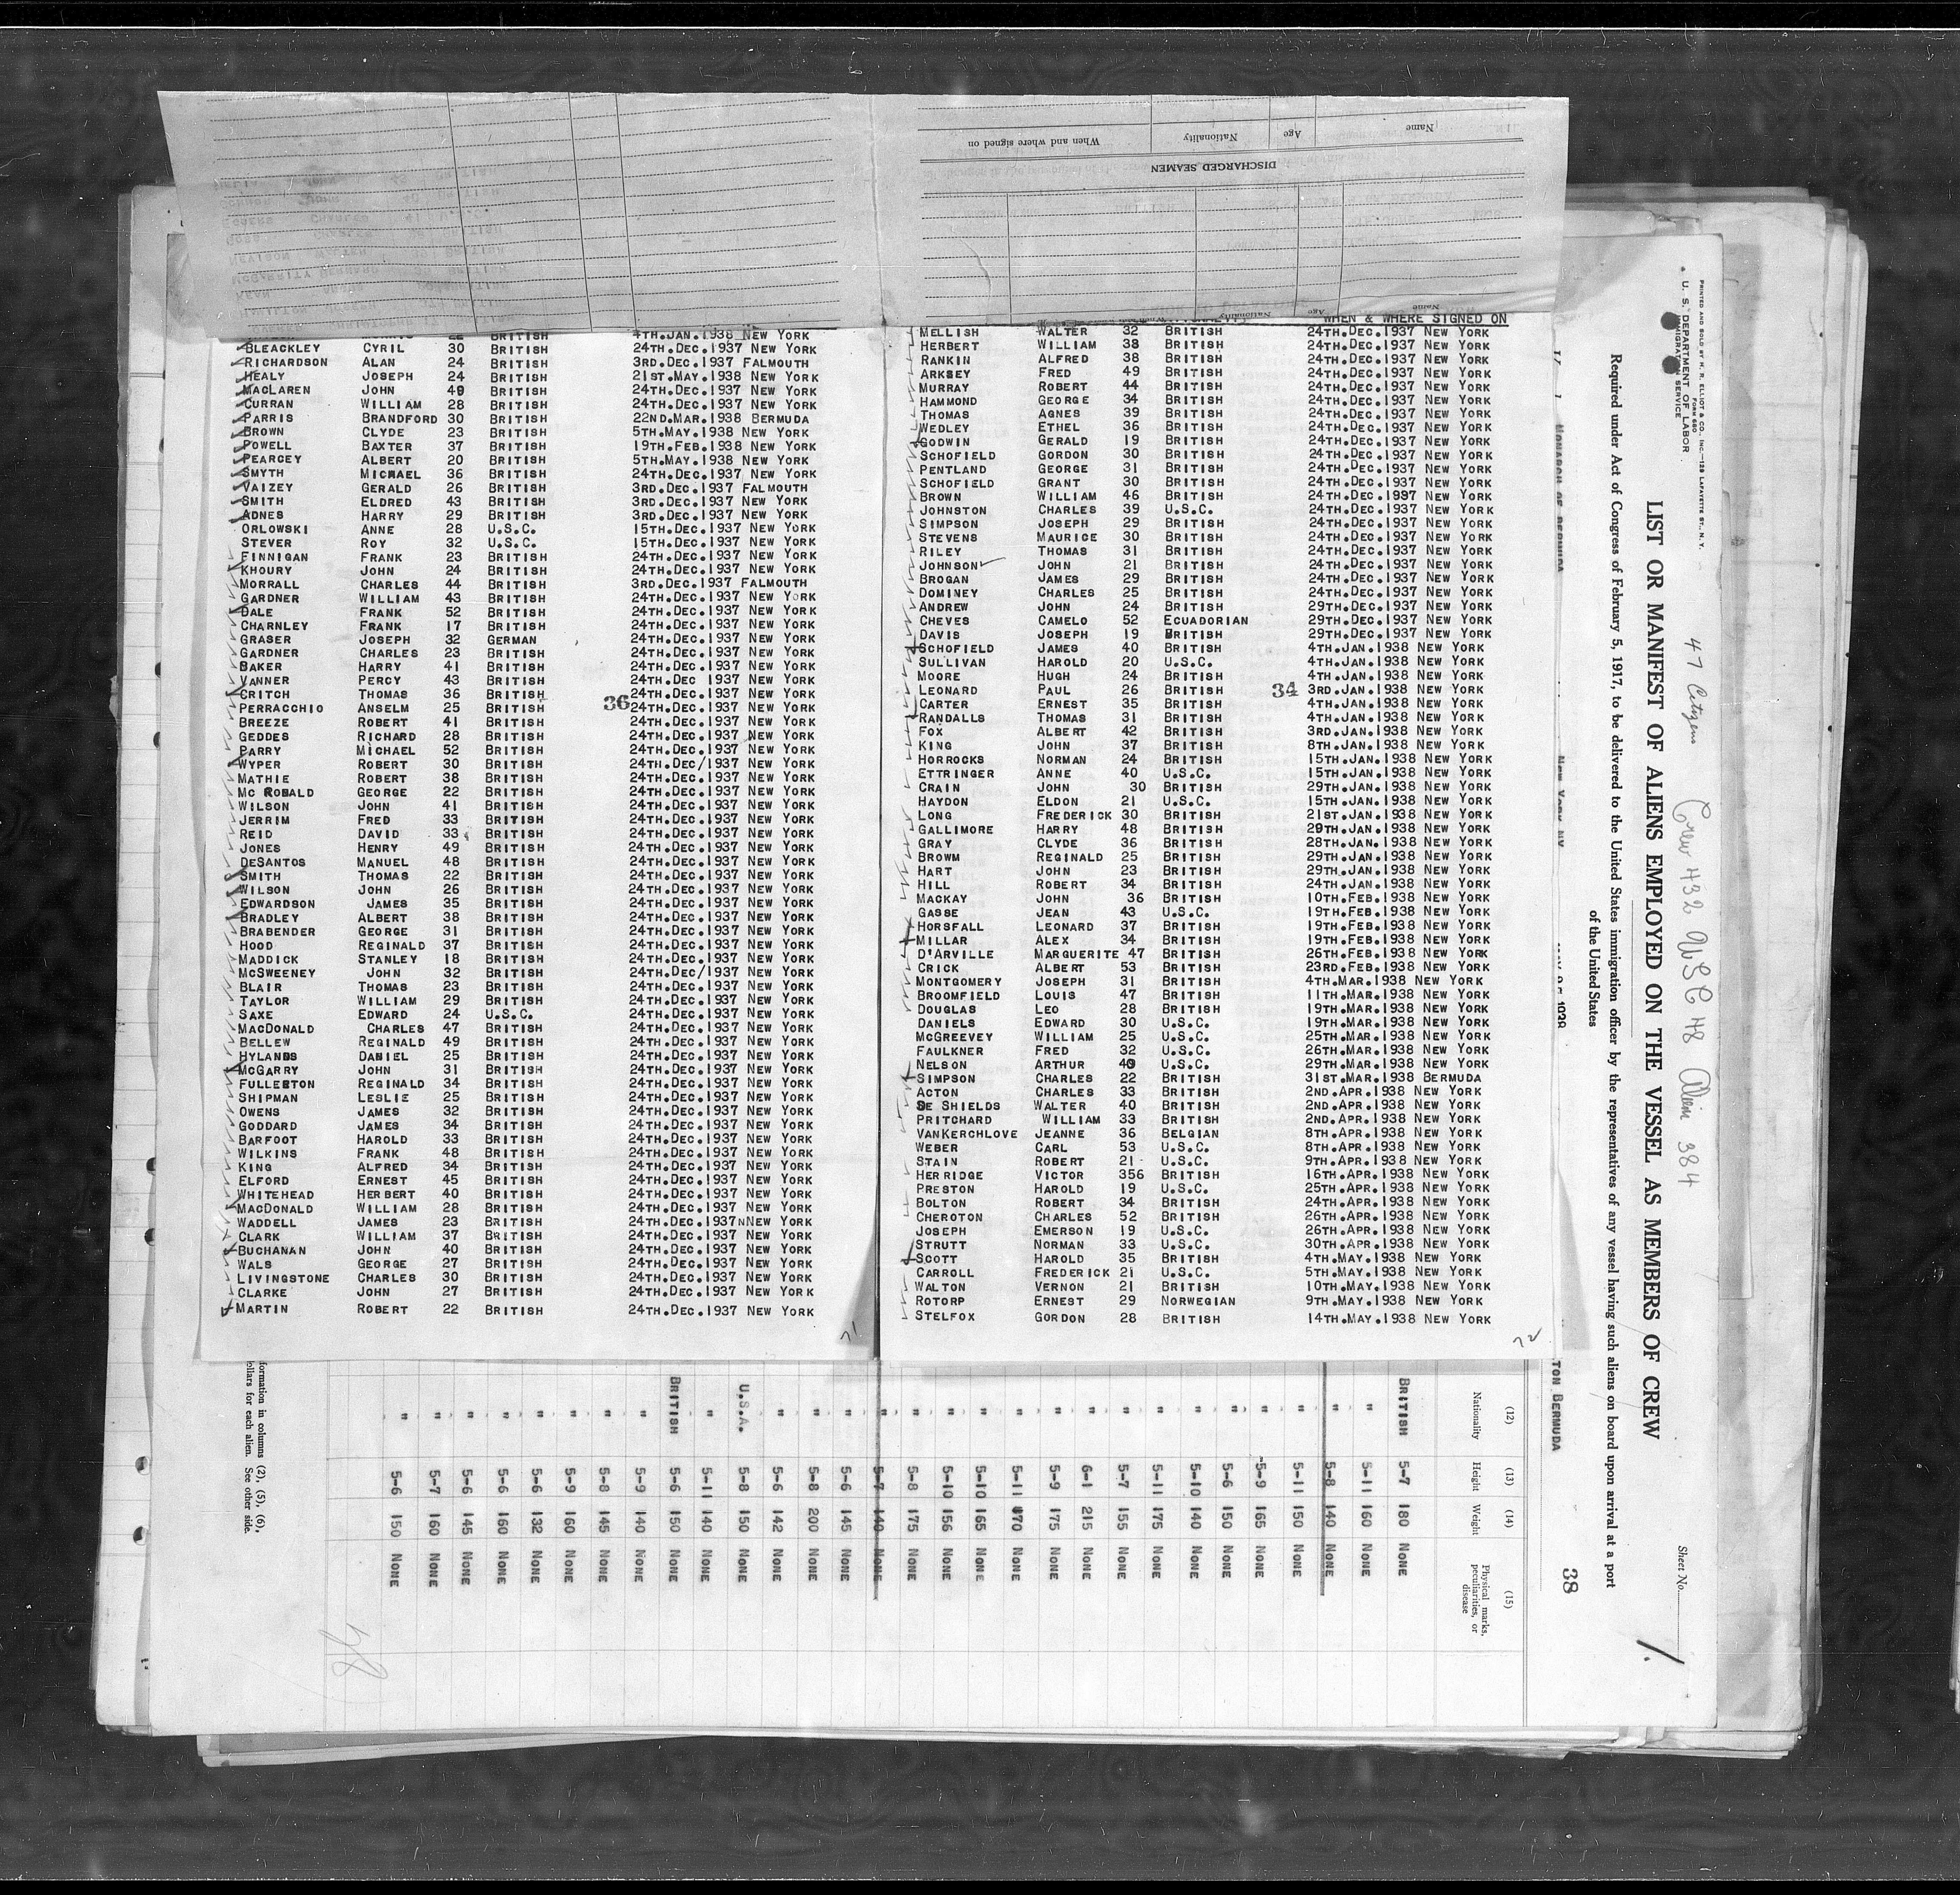 Name Age Nationality When and where signed on
DISCHARGED SEAMEN
Name Age Nationality
4TH.JAN.1938 NEW YORK
BLEACKLEY CYRIL 30 BRITISH 24TH.DEC.1937 NEW YORK
RICHARDSON ALAN 24 BRITISH 3RD.DEC.1937 FALMOUTH
HEALY JOSEPH 24 BRITISH 21ST.MAY.1938 NEW YORK
MACLAREN JOHN 49 BRITISH 24TH.DEC.1937 NEW YORK
CURRAN WILLIAM 28 BRITISH 24TH.DEC.1937 NEW YORK
PARRIS BRANDFORD 30 BRITISH 22ND.MAR.1938 BERMUDA
BROWN CLYDE 23 BRITISH 5TH.MAY.1938 NEW YORK
POWELL BAXTER 37 BRITISH 19TH.FEB.1938 NEW YORK
PEARCEY ALBERT 20 BRITISH 5TH.MAY.1938 NEW YORK
SMYTH MICHAEL 36 BRITISH 24TH.DEC.1937 NEW YORK
VAIZEY GERALD 26 BRITISH 3RD.DEC.1937 FALMOUTH
SMITH ELDRED 43 BRITISH 3RD.DEC.1937 NEW YORK
ADNES HARRY 29 BRITISH 3RD.DEC.1937 NEW YORK
ORLOWSKI ANNE 28 U.S.C. 15TH.DEC.1937 NEW YORK
STEVER ROY 32 U.S.C. 15TH.DEC.1937 NEW YORK
FINNIGAN FRANK 23 BRITISH 24TH.DEC.1937 NEW YORK
KHOURY JOHN 24 BRITISH 24TH.DEC.1937 NEW YORK
MORRALL CHARLES 44 BRITISH 3RD.DEC.1937 FALMOUTH
GARDNER WILLIAM 43 BRITISH 24TH.DEC.1937 NEW YORK
DALE FRANK 52 BRITISH 24TH.DEC.1937 NEW YORK
CHARNLEY FRANK 17 BRITISH 24TH.DEC.1937 NEW YORK
GRASER JOSEPH 32 GERMAN 24TH.DEC.1937 NEW YORK
GARDNER CHARLES 23 BRITISH 24TH.DEC.1937 NEW YORK
BAKER HARRY 41 BRITISH 24TH.DEC.1937 NEW YORK
VANNER PERCY 43 BRITISH 24TH.DEC.1937 NEW YORK
CRITCH THOMAS 36 BRITISH 24TH.DEC.1937 NEW YORK
PERRACCHIO ANSELM 25 BRITISH 36 24TH.DEC.1937 NEW YORK
BREEZE ROBERT 41 BRITISH 24TH.DEC.1937 NEW YORK
GEDDES RICHARD 28 BRITISH 24TH.DEC.1937 NEW YORK
PARRY MICHAEL 52 BRITISH 24TH.DEC.1937 NEW YORK
WYPER ROBERT 30 BRITISH 24TH.DEC/1937 NEW YORK
MATHIE ROBERT 38 BRITISH 24TH.DEC.1937 NEW YORK
MC RONALD GEORGE 22 BRITISH 24TH.DEC.1937 NEW YORK
WILSON JOHN 41 BRITISH 24TH.DEC.1937 NEW YORK
JERRIM FRED 33 BRITISH 24TH.DEC.1937 NEW YORK
REID DAVID 33 BRITISH 24TH.DEC.1937 NEW YORK
JONES HENRY 49 BRITISH 24TH.DEC.1937 NEW YORK
DESANTOS MANUEL 48 BRITISH 24TH.DEC.1937 NEW YORK
SMITH THOMAS 22 BRITISH 24TH.DEC.1937 NEW YORK
WILSON JOHN 26 BRITISH 24TH.DEC.1937 NEW YORK
EDWARDSON JAMES 35 BRITISH 24TH.DEC.1937 NEW YORK
BRADLEY ALBERT 38 BRITISH 24TH.DEC.1937 NEW YORK
BRABENDER GEORGE 31 BRITISH 24TH.DEC.1937 NEW YORK
HOOD REGINALD 37 BRITISH 24TH.DEC.1937 NEW YORK
MADDICK STANLEY 18 BRITISH 24TH.DEC.1937 NEW YORK
MCSWEENEY JOHN 32 BRITISH 24TH.DEC/1937 NEW YORK
BLAIR THOMAS 23 BRITISH 24TH.DEC.1937 NEW YORK
TAYLOR WILLIAM 29 BRITISH 24TH.DEC.1937 NEW YORK
SAXE EDWARD 24 U.S.C. 24TH.DEC.1937 NEW YORK
MACDONALD CHARLES 47 BRITISH 24TH.DEC.1937 NEW YORK
BELLEW REGINALD 49 BRITISH 24TH.DEC.1937 NEW YORK
HYLANDS DANIEL 25 BRITISH 24TH.DEC.1937 NEW YORK
MCGARRY JOHN 31 BRITISH 24TH.DEC.1937 NEW YORK
FULLERTON REGINALD 34 BRITISH 24TH.DEC.1937 NEW YORK
SHIPMAN LESLIE 25 BRITISH 24TH.DEC.1937 NEW YORK
OWENS JAMES 32 BRITISH 24TH.DEC.1937 NEW YORK
GODDARD JAMES 34 BRITISH 24TH.DEC.1937 NEW YORK
BARFOOT HAROLD 33 BRITISH 24TH.DEC.1937 NEW YORK
WILKINS FRANK 48 BRITISH 24TH.DEC.1937 NEW YORK
KING ALFRED 34 BRITISH 24TH.DEC.1937 NEW YORK
ELFORD ERNEST 45 BRITISH 24TH.DEC.1937 NEW YORK
WHITEHEAD HERBERT 40 BRITISH 24TH.DEC.1937 NEW YORK
MACDONALD WILLIAM 28 BRITISH 24TH.DEC.1937 NEW YORK
WADDELL JAMES 23 BRITISH 24TH.DEC.1937NNEW YORK
CLARK WILLIAM 37 BRITISH 24TH.DEC.1937 NEW YORK
BUCHANAN JOHN 40 BRITISH 24TH.DEC.1937 NEW YORK
WALS GEORGE 27 BRITISH 24TH.DEC.1937 NEW YORK
LIVINGSTONE CHARLES 30 BRITISH 24TH.DEC.1937 NEW YORK
CLARKE JOHN 27 BRITISH 24TH.DEC.1937 NEW YORK
MARTIN ROBERT 22 BRITISH 24TH.DEC.1937 NEW YORK
71
WHEN & WHERE SIGNED ON
MELLISH WALTER 32 BRITISH 24TH.DEC.1937 NEW YORK
HERBERT WILLIAM 38 BRITISH 24TH.DEC.1937 NEW YORK
RANKIN ALFRED 38 BRITISH 24TH.DEC.1937 NEW YORK
ARKSEY FRED 49 BRITISH 24TH.DEC.1937 NEW YORK
MURRAY ROBERT 44 BRITISH 24TH.DEC.1937 NEW YORK
HAMMOND GEORGE 34 BRITISH 24TH.DEC.1937 NEW YORK
THOMAS AGNES 39 BRITISH 24TH.DEC.1937 NEW YORK
WEDLEY ETHEL 36 BRITISH 24TH.DEC.1937 NEW YORK
GODWIN GERALD 19 BRITISH 24TH.DEC.1937 NEW YORK
SCHOFIELD GORDON 30 BRITISH 24TH.DEC.1937 NEW YORK
PENTLAND GEORGE 31 BRITISH 24TH.DEC.1937 NEW YORK
SCHOFIELD GRANT 30 BRITISH 24TH.DEC.1937 NEW YORK
BROWN WILLIAM 46 BRITISH 24TH.DEC.1997 NEW YORK
JOHNSTON CHARLES 39 U.S.C. 24TH.DEC.1937 NEW YORK
SIMPSON JOSEPH 29 BRITISH 24TH.DEC.1937 NEW YORK
STEVENS MAURICE 30 BRITISH 24TH.DEC.1937 NEW YORK
RILEY THOMAS 31 BRITISH 24TH.DEC.1937 NEW YORK
JOHNSON JOHN 21 BRITISH 24TH.DEC.1937 NEW YORK
BROGAN JAMES 29 BRITISH 24TH.DEC.1937 NEW YORK
DOMINEY CHARLES 25 BRITISH 24TH.DEC.1937 NEW YORK
ANDREW JOHN 24 BRITISH 29TH.DEC.1937 NEW YORK
CHEVES CAMELO 52 ECUADORIAN 29TH.DEC.1937 NEW YORK
DAVIS JOSEPH 19 BRITISH 29TH.DEC.1937 NEW YORK
SCHOFIELD JAMES 40 BRITISH 4TH.JAN.1938 NEW YORK
SULLIVAN HAROLD 20 U.S.C. 4TH.JAN.1938 NEW YORK
MOORE HUGH 24 BRITISH 4TH.JAN.1938 NEW YORK
LEONARD PAUL 26 BRITISH 34 3RD.JAN.1938 NEW YORK
CARTER ERNEST 35 BRITISH 4TH.JAN.1938 NEW YORK
RANDALLS THOMAS 31 BRITISH 4TH.JAN.1938 NEW YORK
FOX ALBERT 42 BRITISH 3RD.JAN.1938 NEW YORK
KING JOHN 37 BRITISH 8TH.JAN.1938 NEW YORK
HORROCKS NORMAN 24 BRITISH 15TH.JAN.1938 NEW YORK
ETTRINGER ANNE 40 U.S.C. 15TH.JAN.1938 NEW YORK
CRAIN JOHN 30 BRITISH 29TH.JAN.1938 NEW YORK
HAYDON ELDON 21 U.S.C. 15TH.JAN.1938 NEW YORK
LONG FREDERICK 30 BRITISH 21ST.JAN.1938 NEW YORK
GALLIMORE HARRY 48 BRITISH 29TH.JAN.1938 NEW YORK
GRAY CLYDE 36 BRITISH 28TH.JAN.1938 NEW YORK
BROWM REGINALD 25 BRITISH 29TH.JAN.1938 NEW YORK
HART JOHN 23 BRITISH 29TH.JAN.1938 NEW YORK
HILL ROBERT 34 BRITISH 24TH.JAN.1938 NEW YORK
MACKAY JOHN 36 BRITISH 10TH.FEB.1938 NEW YORK
GASSE JEAN 43 U.S.C. 19TH.FEB.1938 NEW YORK
HORSFALL LEONARD 37 BRITISH 19TH.FEB.1938 NEW YORK
MILLAR ALEX 34 BRITISH 19TH.FEB.1938 NEW YORK
D'ARVILLE MARGUERITE 47 BRITISH 26TH.FEB.1938 NEW YORK
CRICK ALBERT 53 BRITISH 23RD.FEB.1938 NEW YORK
MONTGOMERY JOSEPH 31 BRITISH 4TH.MAR.1938 NEW YORK
BROOMFIELD LOUIS 47 BRITISH 11TH.MAR.1938 NEW YORK
DOUGLAS LEO 28 BRITISH 19TH.MAR.1938 NEW YORK
DANIELS EDWARD 30 U.S.C. 19TH.MAR.1938 NEW YORK
MCGREEVEY WILLIAM 25 U.S.C. 25TH.MAR.1938 NEW YORK
FAULKNER FRED 32 U.S.C. 26TH.MAR.1938 NEW YORK
NELSON ARTHUR 49 U.S.C. 29TH.MAR.1938 NEW YORK
SIMPSON CHARLES 22 BRITISH 31ST.MAR.1938 BERMUDA
ACTON CHARLES 33 BRITISH 2ND.APR.1938 NEW YORK
DE SHIELDS WALTER 40 BRITISH 2ND.APR.1938 NEW YORK
PRITCHARD WILLIAM 33 BRITISH 2ND.APR.1938 NEW YORK
VANKERCHLOVE JEANNE 36 BELGIAN 8TH.APR.1938 NEW YORK
WEBER CARL 53 U.S.C. 8TH.APR.1938 NEW YORK
STAIN ROBERT 21 U.S.C. 9TH.APR.1938 NEW YORK
HERRIDGE VICTOR 356 BRITISH 16TH.APR.1938 NEW YORK
PRESTON HAROLD 19 U.S.C. 25TH.APR.1938 NEW YORK
BOLTON ROBERT 34 BRITISH 24TH.APR.1938 NEW YORK
CHEROTON CHARLES 52 BRITISH 26TH.APR.1938 NEW YORK
JOSEPH EMERSON 19 U.S.C. 26TH.APR.1938 NEW YORK
STRUTT NORMAN 33 U.S.C. 30TH.APR.1938 NEW YORK
SCOTT HAROLD 35 BRITISH 4TH.MAY.1938 NEW YORK
CARROLL FREDERICK 21 U.S.C. 5TH.MAY.1938 NEW YORK
WALTON VERNON 21 BRITISH 10TH.MAY.1938 NEW YORK
ROTORP ERNEST 29 NORWEGIAN 9TH.MAY.1938 NEW YORK
STELFOX GORDON 28 BRITISH 14TH.MAY.1938 NEW YORK
72
PRINTED AND SOLD BY H. R. ELLIOT & CO. INC.—129 LAFAYETTE ST., N. Y.
FORM 680
U. S. DEPARTMENT OF LABOR
IMMIGRATION SERVICE
47 Citizens Crew 432 USC 48 Alien 384
Sheet No. 1.
LIST OR MANIFEST OF ALIENS EMPLOYED ON THE VESSEL AS MEMBERS OF CREW
Required under Act of Congress of February 5, 1917, to be delivered to the United States immigration officer by the representatives of any vessel having such aliens on board upon arrival at a port
of the United States
TON BERMUDA 38
(12) (13) (14) (15)
Nationality Height Weight Physical marks, peculiarities, or disease
BRITISH 5-7 180 NONE
" 5-11 160 NONE
" 5-8 140 NONE
" 5-11 150 NONE
" 5-9 165 NONE
" 5-6 150 NONE
" 5-10 140 NONE
" 5-11 175 NONE
" 5-7 155 NONE
" 6-1 215 NONE
" 5-9 175 NONE
" 5-11 170 NONE
" 5-10 165 NONE
" 5-10 156 NONE
" 5-8 175 NONE
" 5-7 140 NONE
" 5-6 145 NONE
" 5-8 200 NONE
" 5-6 142 NONE
U.S.A. 5-8 150 NONE
" 5-11 140 NONE
BRITISH 5-6 150 NONE
" 5-9 140 NONE
" 5-8 145 NONE
" 5-9 160 NONE
" 5-6 132 NONE
" 5-6 160 NONE
" 5-6 145 NONE
" 5-7 160 NONE
" 5-6 150 NONE
formation in columns (2), (5), (6),
ollars for each alien. See other side.